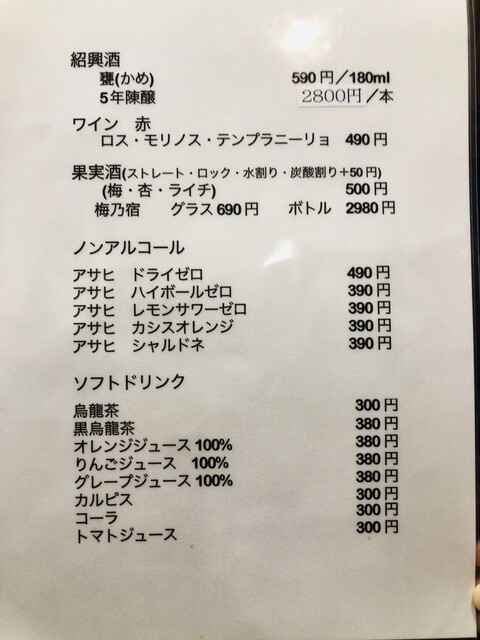 紹興酒
甕(かめ) 590円／180ml
5年陳醸 2800円／本
ワイン 赤
ロス・モリノス・テンプラニーリョ 490円
果実酒(ストレート・ロック・水割り・炭酸割り＋50円)
(梅・杏・ライチ) 500円
梅乃宿 グラス690円 ボトル 2980円
ノンアルコール
アサヒ ドライゼロ 490円
アサヒ ハイボールゼロ 390円
アサヒ レモンサワーゼロ 390円
アサヒ カシスオレンジ 390円
アサヒ シャルドネ 390円
ソフトドリンク
烏龍茶 300円
黒烏龍茶 380円
オレンジジュース100% 380円
りんごジュース 100% 380円
グレープジュース100% 380円
カルピス 300円
コーラ 300円
トマトジュース 300円